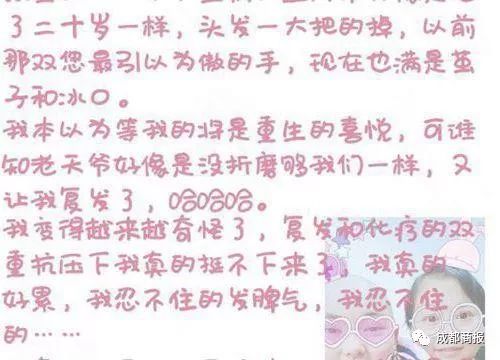 了二十岁一样，头发一大把的掉，以前
那双您最引以为傲的手，现在也满是茧
子和冰口。
我本以为等我的将是重生的喜悦，可谁
知老天爷好像是没折磨够我们一样，又
让我复发了，哈哈哈。
我变得越来越奇怪了，复发和化疗的双
重抗压下我真的挺不下来了，我真的
好累，我忍不住的发脾气，我忍不住
的……
成都商报